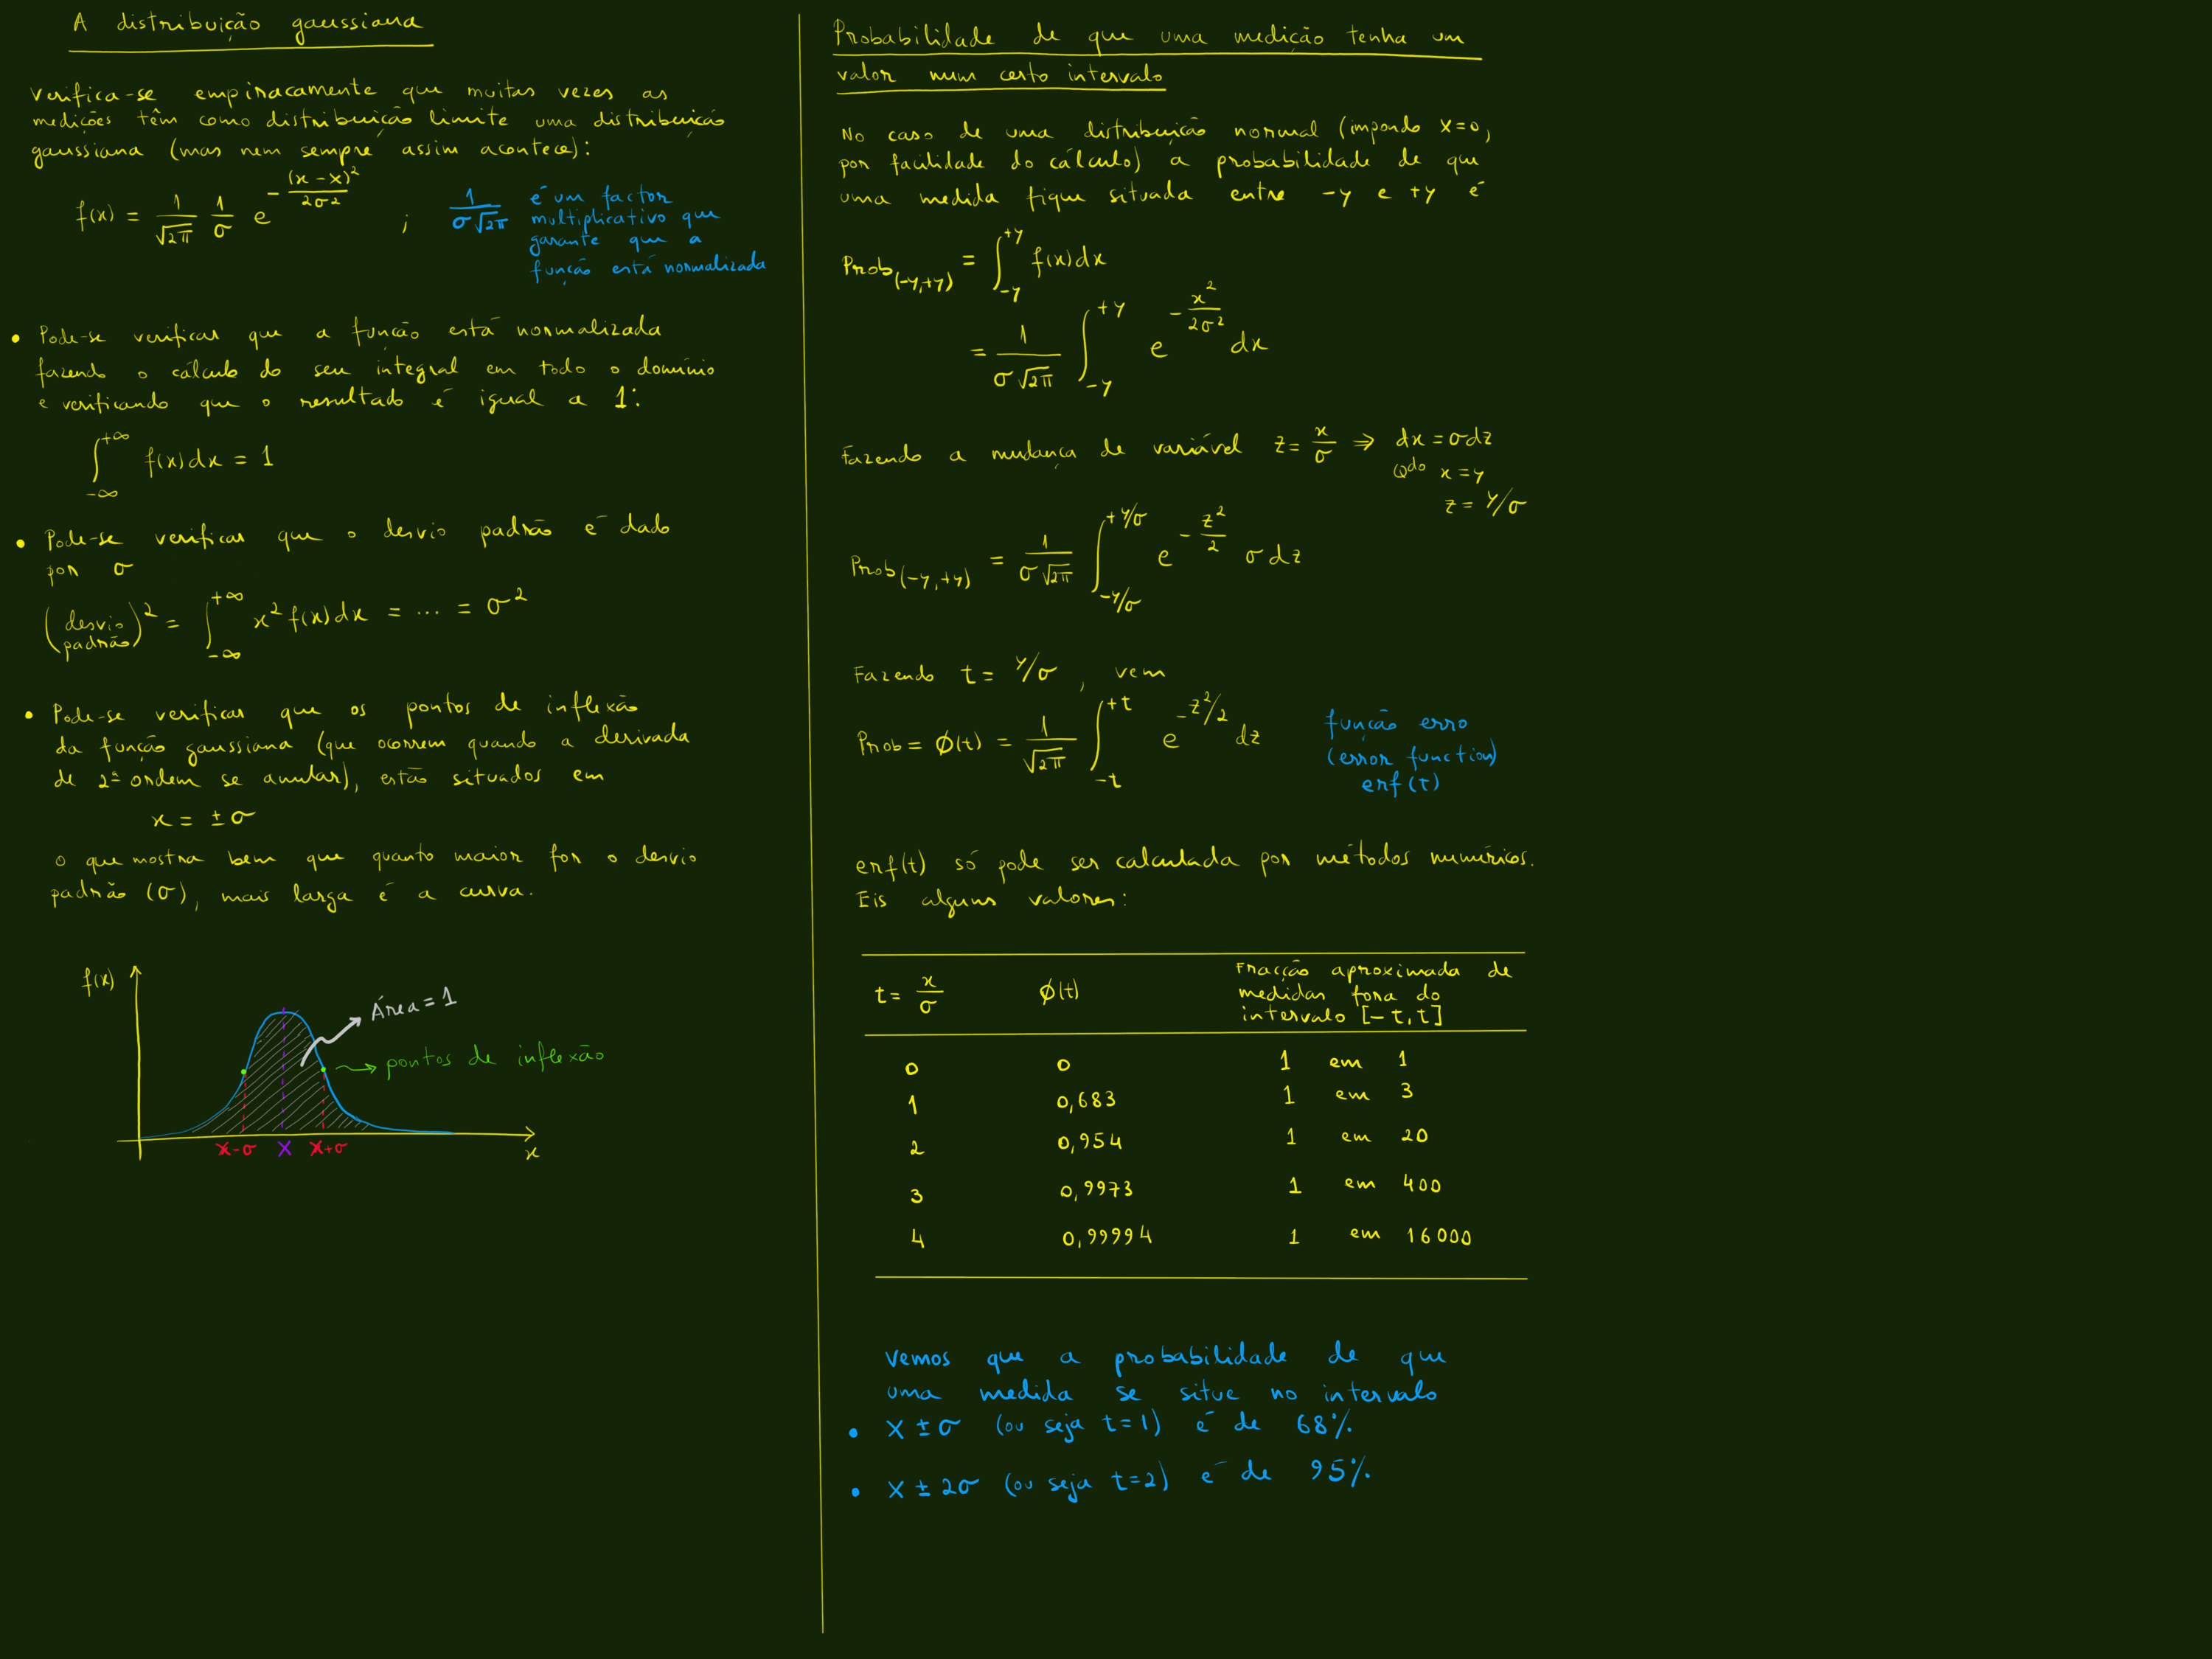 A distribuição gaussiana
Verifica-se empiracamente que muitas vezes as
medições têm como distribuição limite uma distribuição
gaussiana (mas nem sempre assim acontece):
f(x) = 1/√2π 1/σ e^(-(x-X)²/2σ²) ; 1/σ√2π é um factor
multiplicativo que
garante que a
função está normalizada
• Pode-se verificar que a função está normalizada
fazendo o cálculo do seu integral em todo o domínio
e verificando que o resultado é igual a 1:
∫_{-∞}^{+∞} f(x)dx = 1
• Pode-se verificar que o desvio padrão é dado
por σ
(desvio padrão)² = ∫_{-∞}^{+∞} x² f(x)dx = ... = σ²
• Pode-se verificar que os pontos de inflexão
da função gaussiana (que ocorrem quando a derivada
de 2ª ordem se anular), estão situados em
x = ±σ
O que mostra bem que quanto maior for o desvio
padrão (σ), mais larga é a curva.
f(x)
Área = 1
→ pontos de inflexão
X-σ X X+σ
x
Probabilidade de que uma medição tenha um
valor num certo intervalo
No caso de uma distribuição normal (impondo X=0,
por facilidade do cálculo) a probabilidade de que
uma medida fique situada entre -y e +y é
Prob(-y,+y) = ∫_{-y}^{+y} f(x)dx
= 1/σ√2π ∫_{-y}^{+y} e^(-x²/2σ²) dx
Fazendo a mudança de variável z = x/σ ⇒ dx = σdz
Qdo x = y
z = y/σ
Prob(-y,+y) = 1/σ√2π ∫_{-y/σ}^{+y/σ} e^(-z²/2) σ dz
Fazendo t = y/σ, vem
Prob = ϕ(t) = 1/√2π ∫_{-t}^{+t} e^(-z²/2) dz
função erro
(error function)
erf(t)
erf(t) só pode ser calculada por métodos numéricos.
Eis alguns valores:
t = x/σ ϕ(t) Fracção aproximada de
medidas fora do
intervalo [-t,t]
0 0 1 em 1
1 0,683 1 em 3
2 0,954 1 em 20
3 0,9973 1 em 400
4 0,99994 1 em 16000
Vemos que a probabilidade de que
uma medida se situe no intervalo
• X ± σ (ou seja t=1) é de 68%.
• X ± 2σ (ou seja t=2) é de 95%.